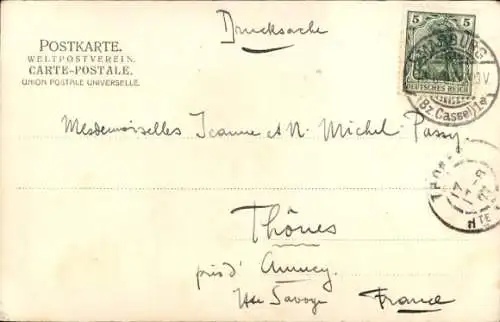 Drucksache
POSTKARTE.
WELTPOSTVEREIN.
CARTE-POSTALE.
UNION POSTALE UNIVERSELLE.
5 5
DEUTSCHES REICH
MARBURG
(Bz. Cassel) 1
Mesdemoiselles Jeanne et N. Michel Passy
THONES
17
HTE
Thônes
près d' Annecy
Hte Savoye France